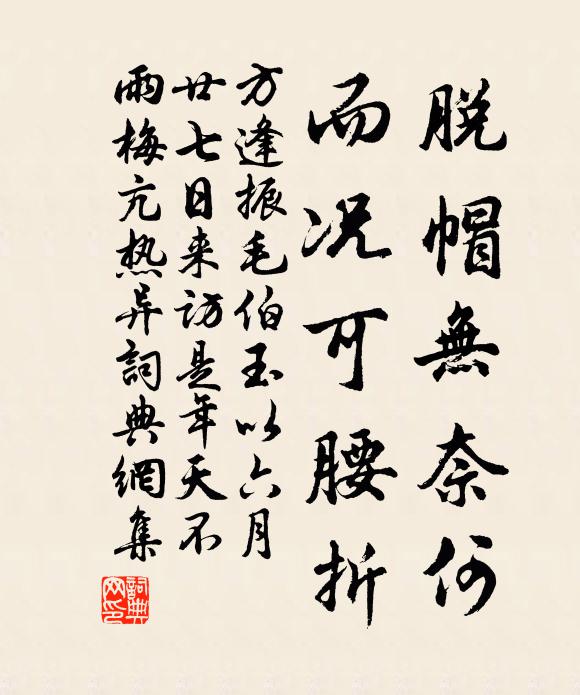 脱帽無奈何
而况可腰折
方逢振毛伯玉以六月
廿七日来访是年天不
雨梅亢热异詞典網集
詞典網印